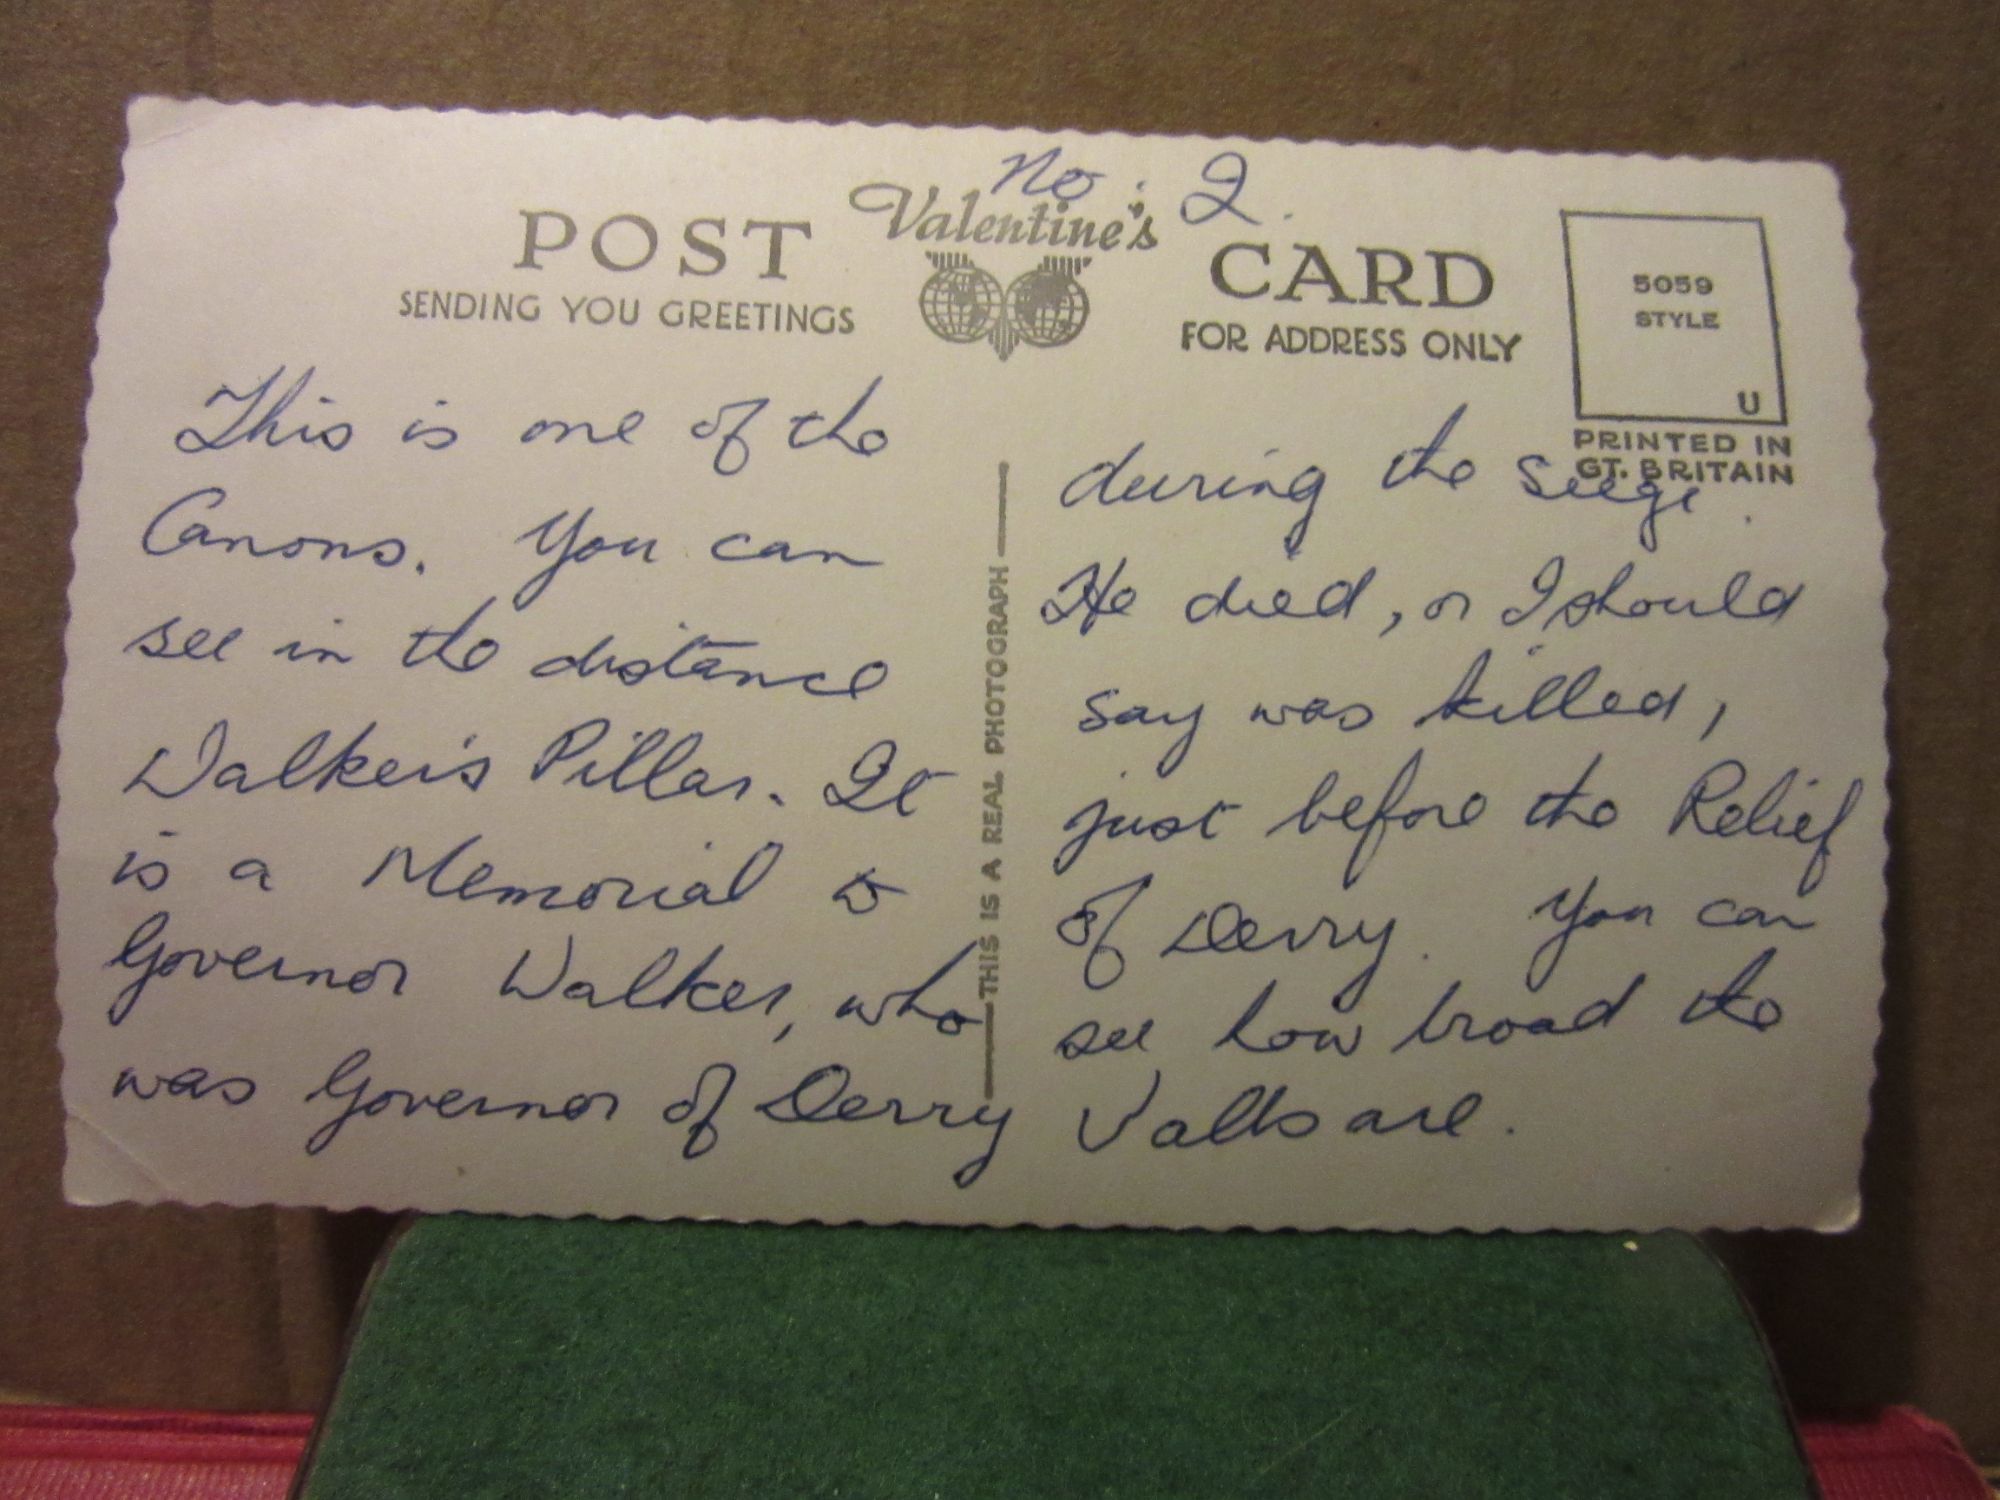 No. 2.
POST Valentine's CARD
SENDING YOU GREETINGS
FOR ADDRESS ONLY
5059
STYLE
U
PRINTED IN
GT. BRITAIN
This is one of the
Canons. You can
see in the distance
Walker's Pillar. It
is a Memorial to
Governor Walker, who
was Governor of Derry
THIS IS A REAL PHOTOGRAPH
during the siege.
He died, or I should
say was killed,
just before the Relief
of Derry. You can
see how broad the
Walls are.